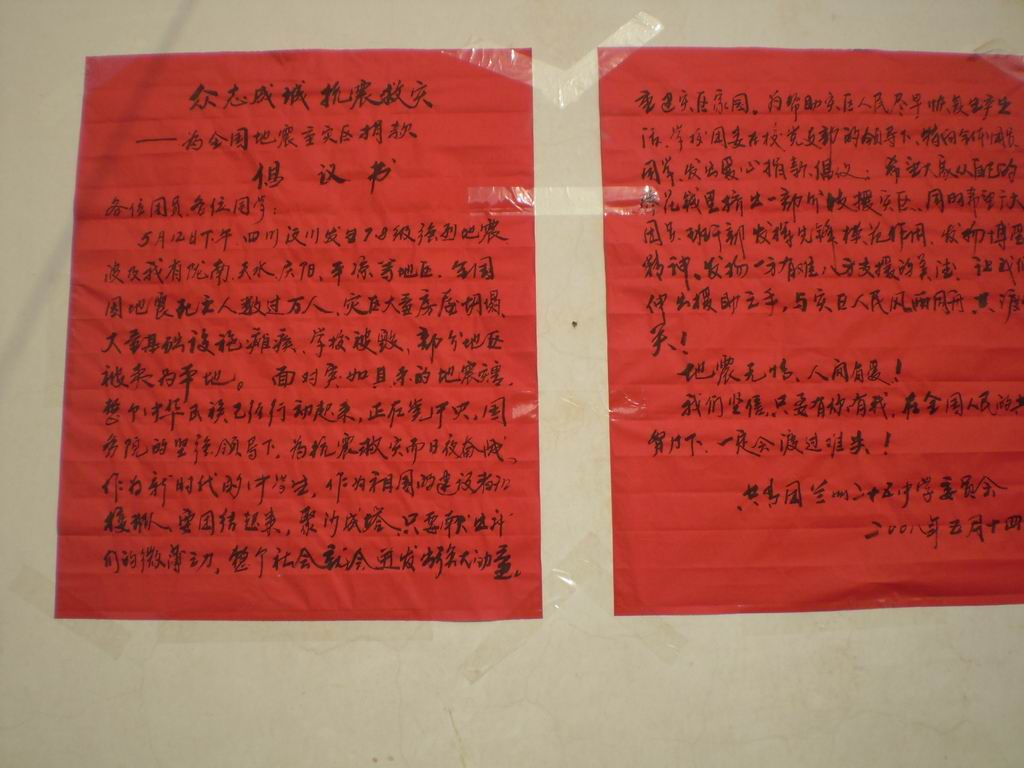 众志成城 抗震救灾
——为全国地震重灾区捐款
倡 议 书
各位团员各位同学:
5月12日下午,四川汶川发生7.8级强烈地震
波及我省陇南、天水、庆阳、平凉等地区,全国
因地震死亡人数过万人,灾区大量房屋倒塌,
大量基础设施瘫痪、学校被毁,部分地区
被夷为平地。面对突如其来的地震灾害,
整个中华民族已经行动起来,正在党中央、国
务院的坚强领导下,为抗震救灾而日夜奋战。
作为新时代的中学生,作为祖国的建设者和
接班人,要团结起来,聚沙成塔,只要献出我
们的微薄之力,整个社会就会迸发出强大力量。
重建灾区家园。为帮助灾区人民尽早恢复生产生
活,学校团委在校党支部的领导下,特向全体团员
同学发出爱心捐款倡议:希望大家从自己的
零花钱里挤出一部分支援灾区,同时希望广大
团员、班干部发挥先锋模范作用,发扬
精神,发扬一方有难八方支援的美德,让我们
伸出援助之手,与灾区人民风雨同舟,共渡
关!
地震无情、人间有爱!
我们坚信,只要有你有我,在全国人民的共
努力下,一定会渡过难关!
共青团兰州二十五中学委员会
二00八年五月十四